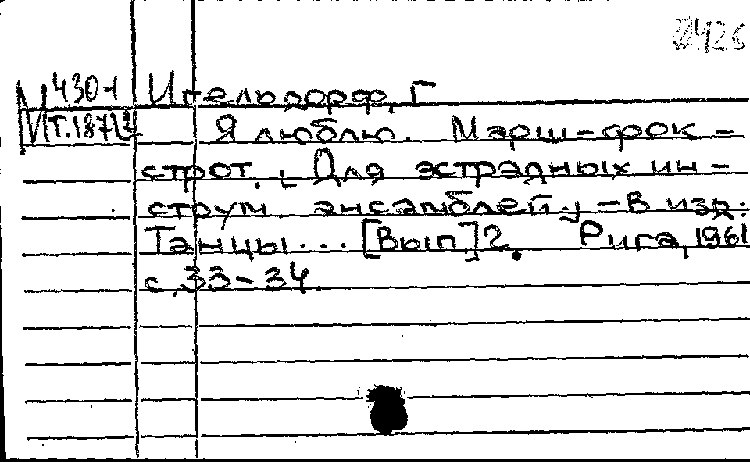 М 430-1 Игельдорф, Г
Я люблю. Марш-фок-
строт. [Для эстрадных ин-
струм. ансамблей] - В изд.:
Танцы... [Вып.] 2. Рига, 1961
с. 33-34.